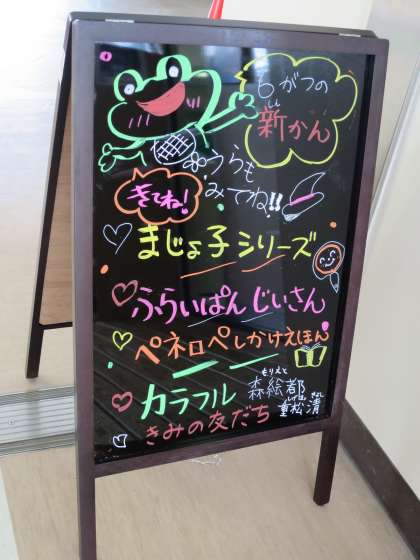 6がつの
しん
新かん
うらも
みてね!!
きてね!
まじょ子シリーズ
ふらいぱんじいさん
ペネロペしかけえほん
もりえと
カラフル 森絵都
しげまつ きよし
きみの友だち 重松清